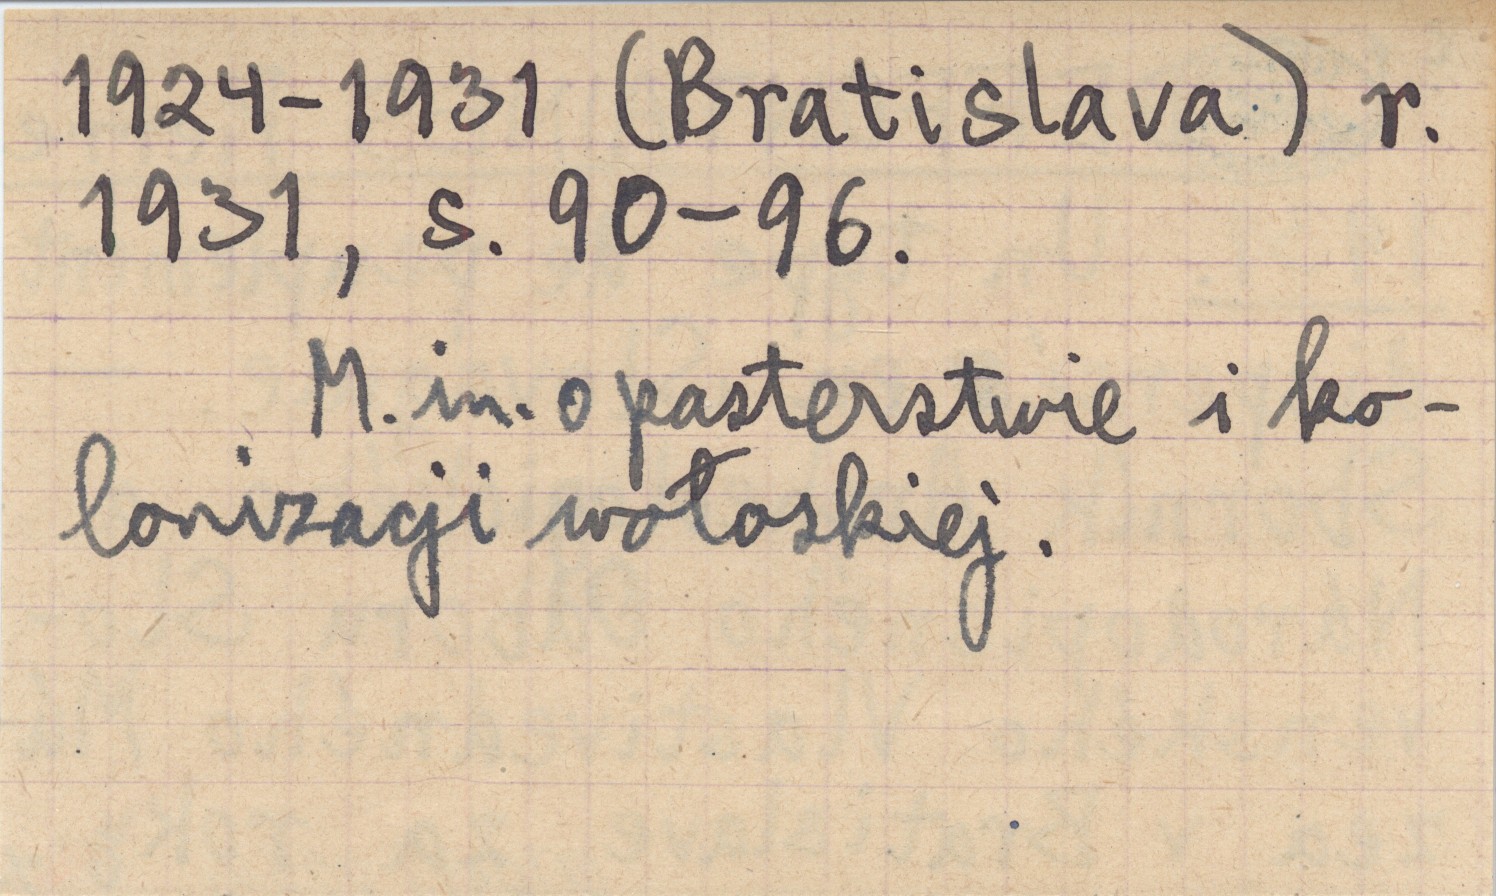 1924-1931 (Bratislava) r.
1931, s. 90-96.
M. in. o pasterstwie i ko-
lonizacji wołoskiej.